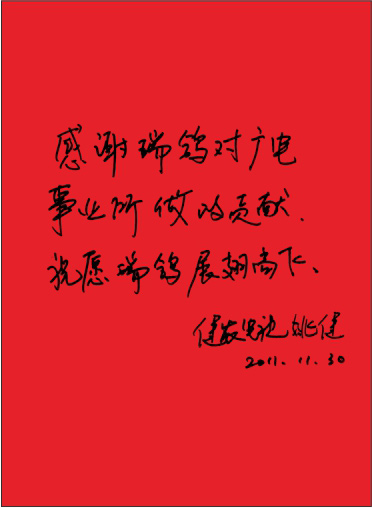 感谢瑞鸽对广电
事业所做的贡献.
祝愿瑞鸽展翅高飞、
姚健
2011.11.30